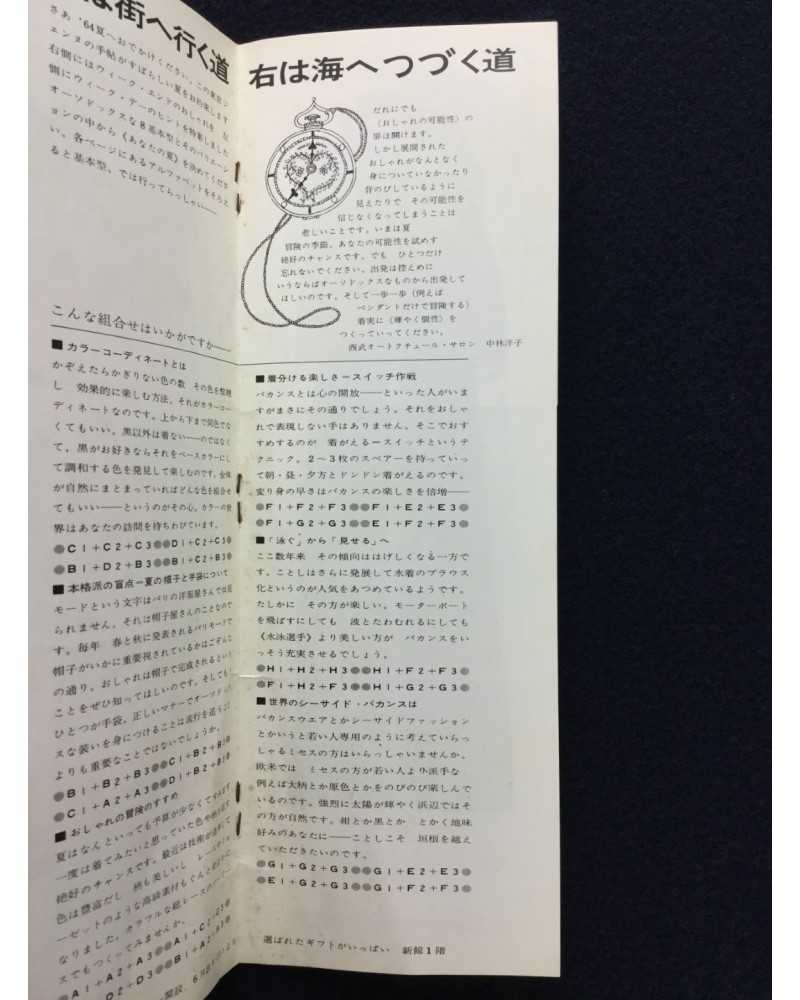 は街へ行く道
さあ '64夏へおでかけください。この東京ジ
ェンヌの手帖がすばらしい夏をお約束します
右側にはウィーク・エンドのおしゃれを 左
側にウィーク・デーのヒントを特集しました
オーソドックスな8基本型と4のバリエーシ
ョンの中から《あなたの夏》を決めてくださ
い。各ページにあるアルファベットをそろえ
ると基本型、では行ってらっしゃい——
こんな組合せはいかがですか——
■カラーコーディネートとは
かぞえたらかぎりない色の数 その色を整理
し 効果的に楽しむ方法、それがカラーコー
ディネートなのです。上から下まで同色でな
くてもいい。黒以外は着ない——のではなく
て、黒がお好きならそれをベースカラーにし
て調和する色を発見して楽しむのです。全体
が自然にまとまっていればどんな色を組合せ
てもいい——というのがその心。カラーの世
界はあなたの訪問を待ちわびています。
●C1+C2+C3●●D1+C2+C3●
●B1+D2+B3●●B1+C2+B3●
■本格派の盲点—夏の帽子と手袋について
モードという文字はパリの洋服屋さんでは見
られません。それは帽子屋さんのことなので
す。毎年 春と秋に発表されるパリモードで
帽子がいかに重要視されているかはごぞんじ
の通り。おしゃれは帽子で完成されるという
ことをぜひ知ってほしいのです。そしてもう
ひとつが手袋。正しいマナーでオーソドック
スな装いを身につけることは流行を追うこと
よりも重要なことではないでしょうか。
●B1+B2+B3●●C1+B2+B3●
●C1+A2+A3●●D1+B2+B3●
■おしゃれの冒険のすすめ
夏はなんといっても予算が少なくてすみます
一度は着てみたいと思っていた色や柄を試す
絶好のチャンスです。最近は技術が進歩して
色は豊富だし 柄も美しいし レースやジョ
ーゼットのような高級素材もぐんとお安く
なりました。カラフルな総レースのドレ
スでもつくってみませんか。
●A1+A2+A3●●A1+C2+C3●
D2+D3●●B1+A2+A3●
右は海へつづく道
だれにでも
《おしゃれの可能性》の
扉は開けます。
しかし展開された
おしゃれがなんとなく
身についていなかったり
背のびしているように
見えたりで その可能性を
信じなくなってしまうことは
悲しいことです。いまは夏
冒険の季節。あなたの可能性を試めす
絶好のチャンスです。でも ひとつだけ
忘れないでください。出発は控えめに
いうならばオーソドックスなものから出発して
ほしいのです。そして一歩一歩（例えば
ペンダントだけで冒険する）
着実に《輝やく個性》を
つくっていってください。
西武オートクチュール・サロン 中林洋子
■着分ける楽しさ—スイッチ作戦
バカンスとは心の開放——といった人がいま
すがまさにその通りでしょう。それをおしゃ
れで表現しない手はありません。そこでおす
すめするのが 着がえる—スイッチというテ
クニック。2〜3枚のスペアーを持っていっ
て朝・昼・夕方とドンドン着がえるのです。
変り身の早さはバカンスの楽しさを倍増——
●F1+F2+F3●●F1+E2+E3●
●F1+G2+G3●●E1+F2+F3●
■「泳ぐ」から「見せる」へ
ここ数年来 その傾向ははげしくなる一方で
す。ことしはさらに発展して水着のブラウス
化というのが人気をあつめているようです。
たしかに その方が楽しい。モーターボート
を飛ばすにしても 波とたわむれるにしても
《水泳選手》より美しい方が バカンスをい
っそう充実させるでしょう。
●H1+H2+H3●●H1+F2+F3●
●F1+H2+F3●●H1+G2+G3●
■世界のシーサイド・バカンスは
バカンスウエアとかシーサイドファッション
とかいうと若い人専用のように考えていらっ
しゃるミセスの方はいらっしゃいませんか。
欧米では ミセスの方が若い人より派手な
例えば大柄とか原色とかをのびのび楽しんで
いるのです。強烈に太陽が輝やく浜辺ではそ
の方が自然です。紺とか黒とか とかく地味
好みのあなたに——ことしこそ 垣根を越え
ていただきたいのです。
●G1+G2+G3●●G1+E2+E3●
●E1+G2+G3●●G1+F2+F3●
選ばれたギフトがいっぱい 新館1階